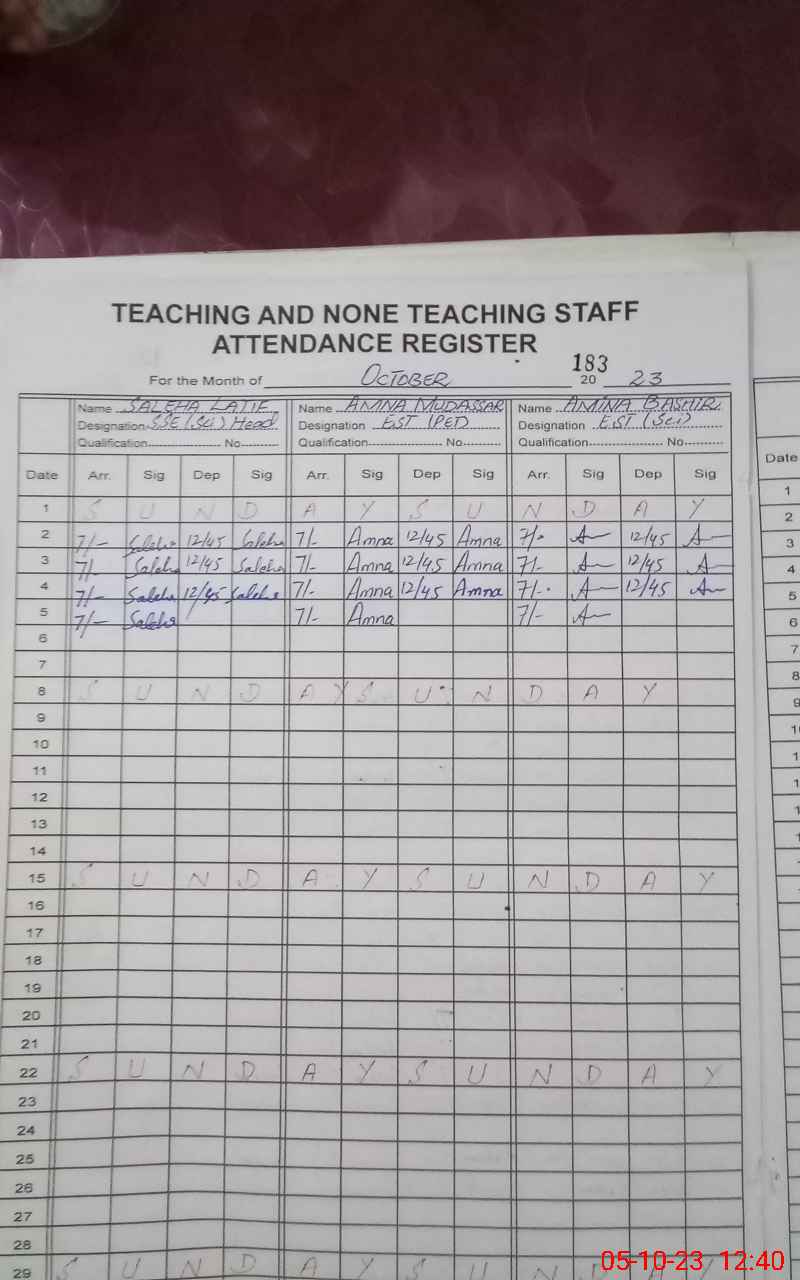 TEACHING AND NONE TEACHING STAFF
ATTENDANCE REGISTER
183
For the Month of OCTOBER 20 23
Name SALEHA LATIF Name AMNA MUDASSAR Name AMINA BASHIR
Designation SSE (Sci) Head Designation EST (PET) Designation EST (Sci)
Qualification No. Qualification No. Qualification No.
Date Arr. Sig Dep Sig Arr. Sig Dep Sig Arr. Sig Dep Sig Date
1 S U N D A Y S U N D A Y 1
2 7/- Saleha 12/45 Saleha 7/- Amna 12/45 Amna 7/- A 12/45 A 2
3 7/- Saleha 12/45 Saleha 7/- Amna 12/45 Amna 7/- A 12/45 A 3
4 7/- Saleha 12/45 Saleha 7/- Amna 12/45 Amna 7/- A 12/45 A 4
5 7/- Saleha 7/- Amna 7/- A 5
6 6
7 7
8 S U N D A Y S U N D A Y 8
9 9
10
11
12
13
14
15 S U N D A Y S U N D A Y
16
17
18
19
20
21
22 S U N D A Y S U N D A Y
23
24
25
26
27
28
29 S U N D A Y S U N D A Y
05-10-23 12:40